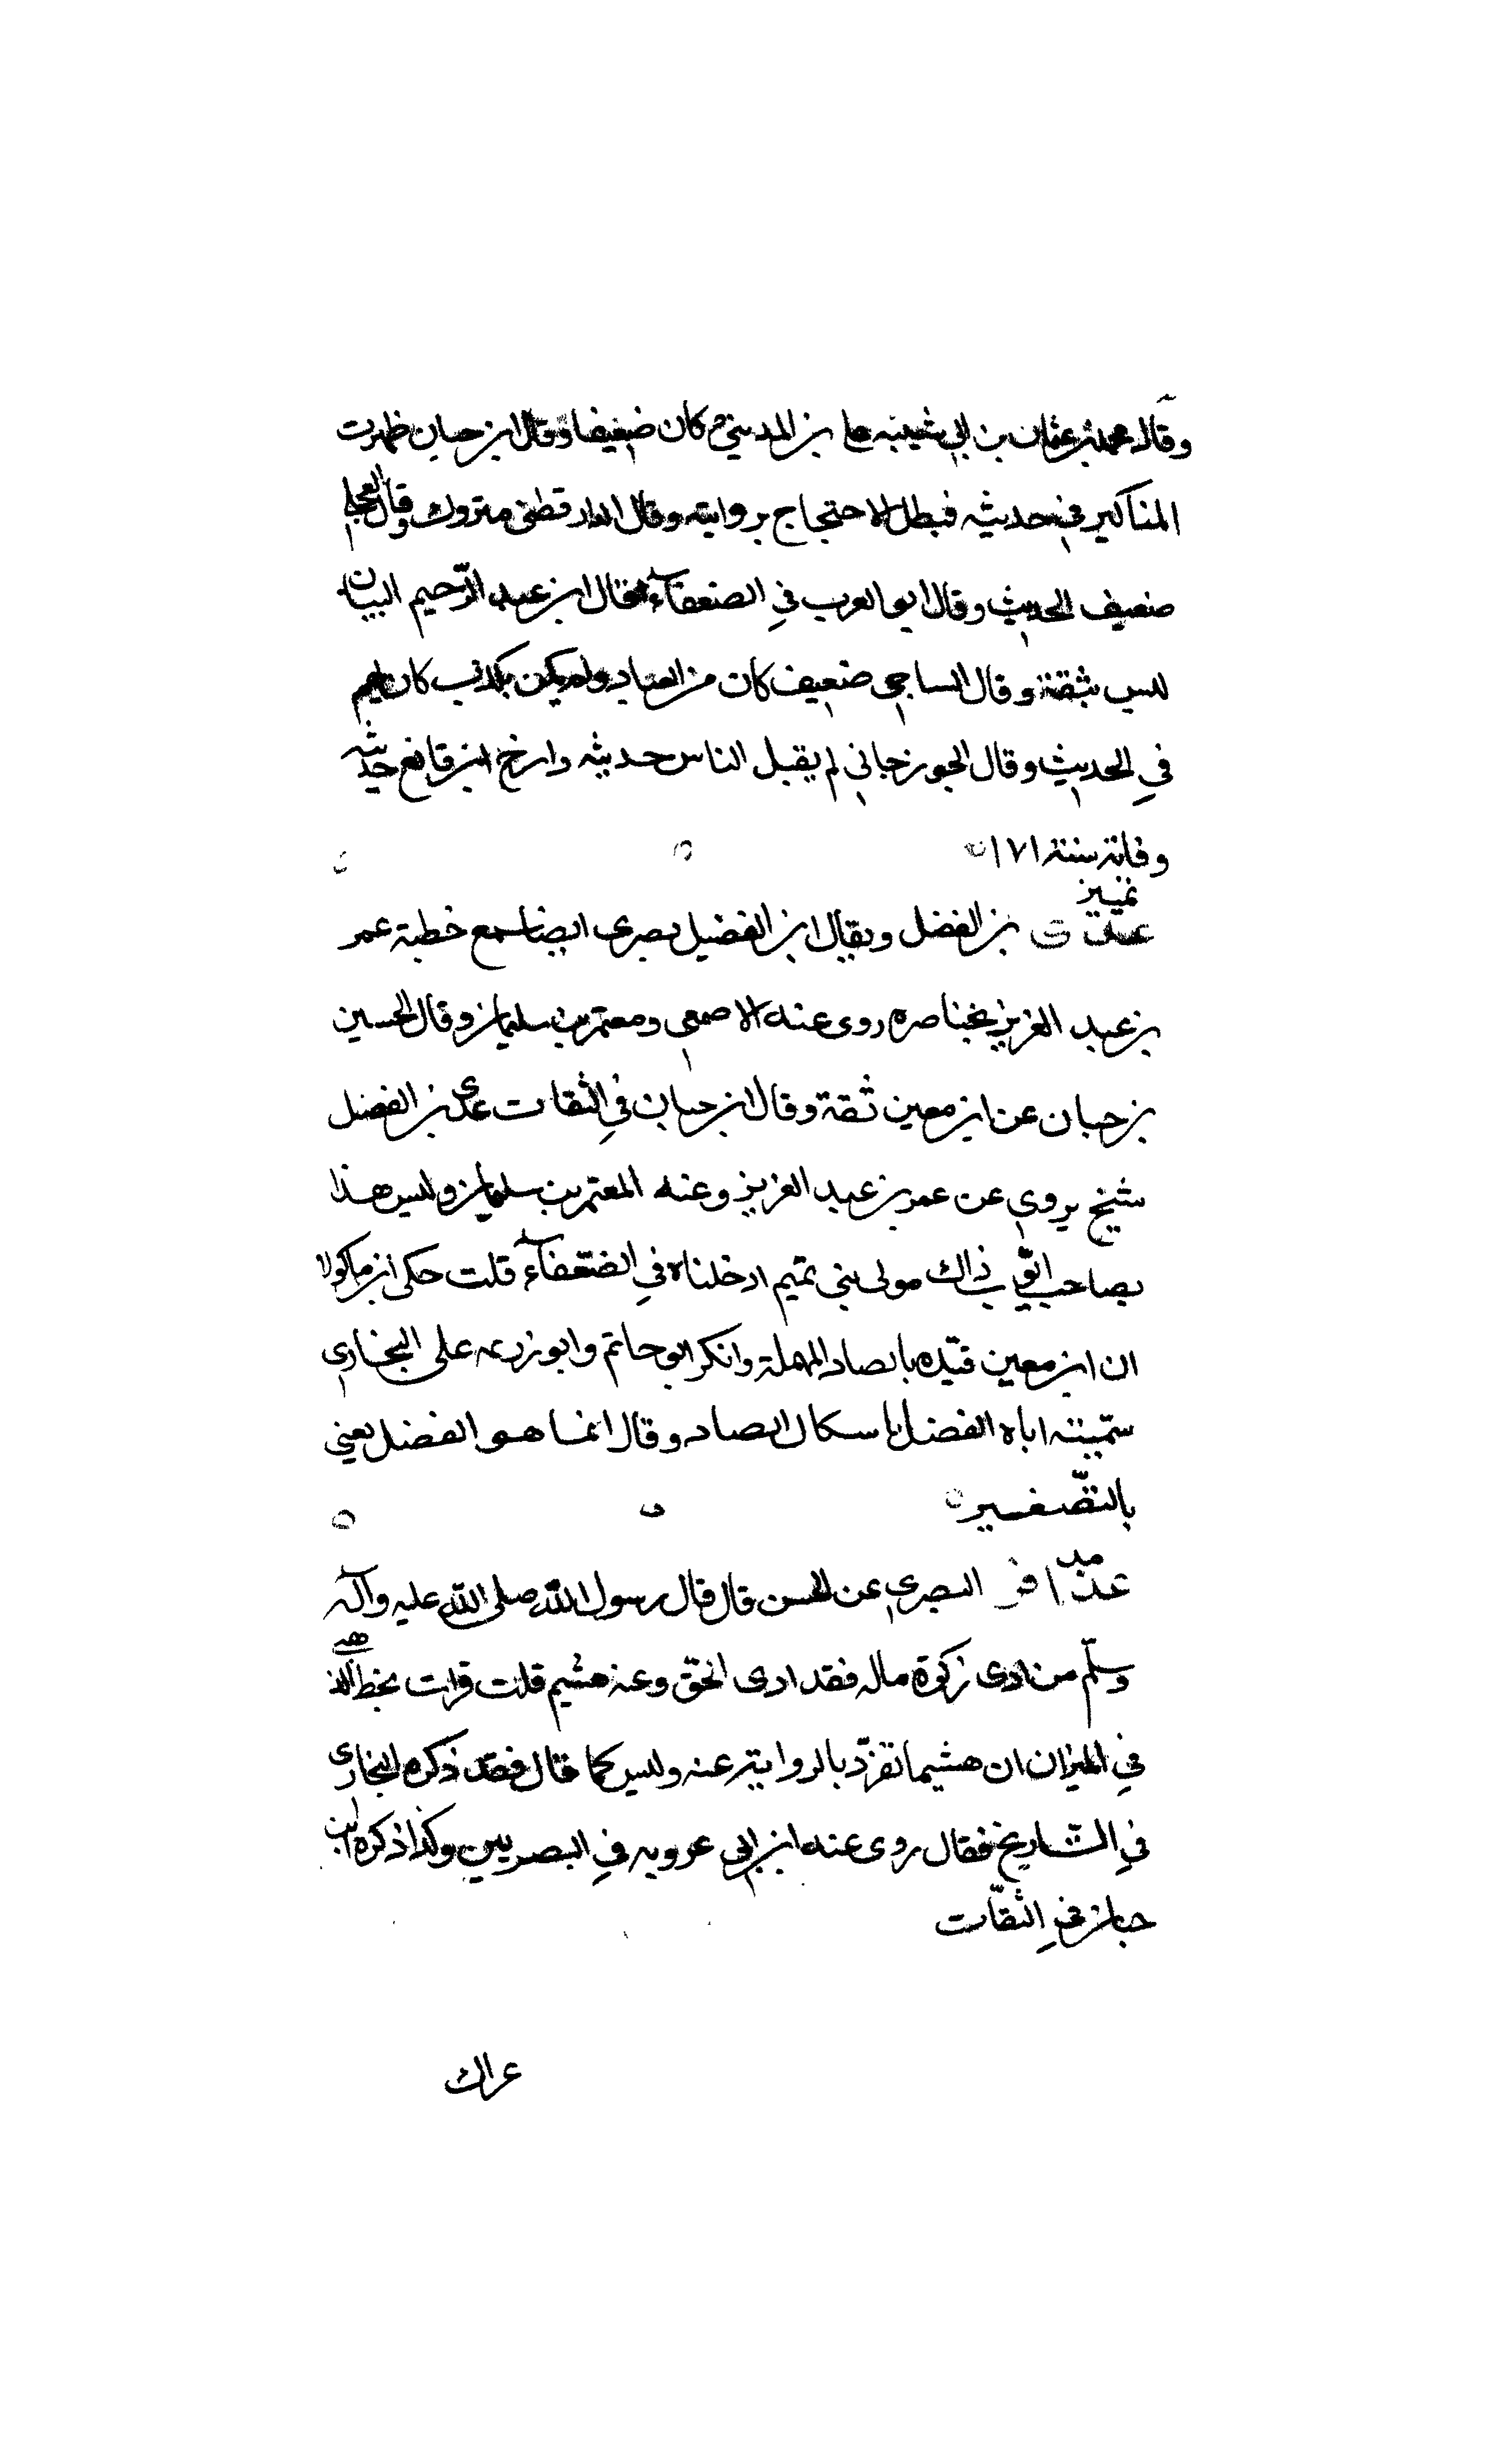 وقال محمد بن عثمان بن ابي شيبه عن بن المديني كان ضعيفا وقال ابن حبان ظهرت
المناكير في حديثه فبطل الاحتجاج بروايته وقال الدارقطنى متروك وقال العجلى
ضعيف الحديث وقال ابو العرب في الضعفآء قال ابن عبد الرّحيم البيان
ليس بثقة وقال الساجى ضعيف كان من العباد ولم يكن يكذب كان يهم
في الحديث وقال الجوزجاني لم يقبل الناس حديثه وارخ ابن قانع حديثه
وفاته سنة ١٧١
تمييز
عدى بن الفضل ويقال ابن الفضيل بصرى ايضا سمع خطبة عمر
بن عبد العزيز بخناصره روى عنه الاصمعى ومعتمر بن سليمان وقال الحسين
بن حبان عن ابن معين ثقة وقال ابن حبان في الثقات عدى بن الفضل
شيخ يروى عن عمر بن عبد العزيز وعنه المعتمر بن سليمان وليس هذا
بصاحب ايّوب ذاك مولى بنى تميم ادخلناه في الضعفآء قلت حكى ابن ماكولا
ان ابن معين قيّده بالصاد المهملة وانكر ابو حاتم وابو زرعه على البخارى
تسميته اباه الفضل باسكان الصاد وقال انما هو الفضيل يعني
بالتصّغير
مد
عذافر البصرى عن الحسن قال قال رسول اللّه صلى اللّه عليه وآله
وسلّم من ادى زكوة ماله فقد ادى الحقّ وعنه هشيم قلت قرات بخط الذهبى
في الميزان ان هشيما تفرّد بالرواية عنه وليس كما قال فقد ذكره البخارى
في التّاريخ فقال روى عنه ابن ابى عروبه في البصريين وكذا ذكره ابن
حبان في الثقّات
عراك